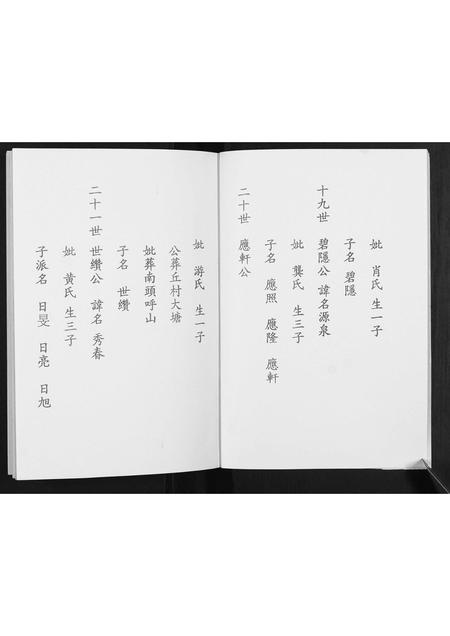 妣 肖氏 生一子
子名 碧隱
十九世 碧隱公 諱名源泉
妣 龔氏 生三子
子名 應照 應隆 應軒
二十世 應軒公
妣 游氏 生一子
公葬丘村大塘
妣葬南頭呼山
子名 世纘
二十一世 世纘公 諱名 秀春
妣 黃氏 生三子
子派名 日旻 日亮 日旭